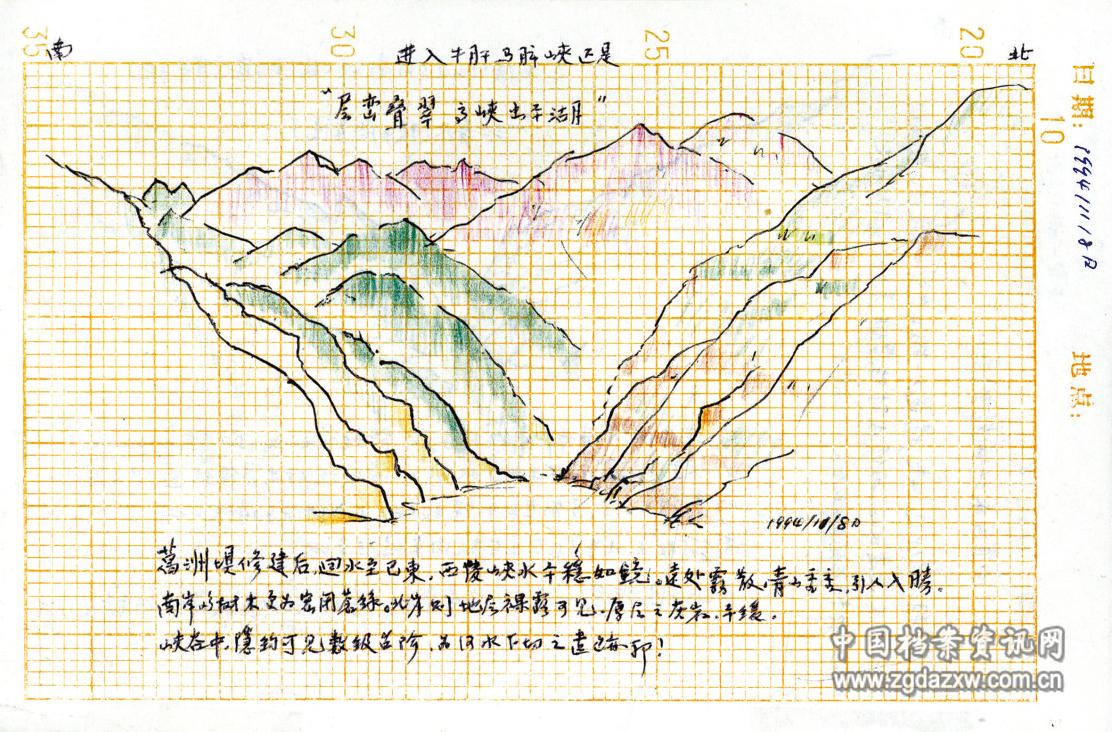 35 30 25 20
南
进入牛肝马肺峡近是
北
"层峦叠翠 高峡出平湖"
日期: 1994/11/8日
10
地点:
1994/11/8日
葛洲坝修建后,回水至巴東,西陵峡水平穩如鏡。遠处霧散,青山重重,引人入勝。
南岸山树木更为密闭蒼绿。北岸则地层裸露可见,厚层之灰岩,平缓。
峡谷中,隱约可见数级台阶,为河水下切之遺迹耶!
中国档案资讯网
www.zgdazxw.com.cn